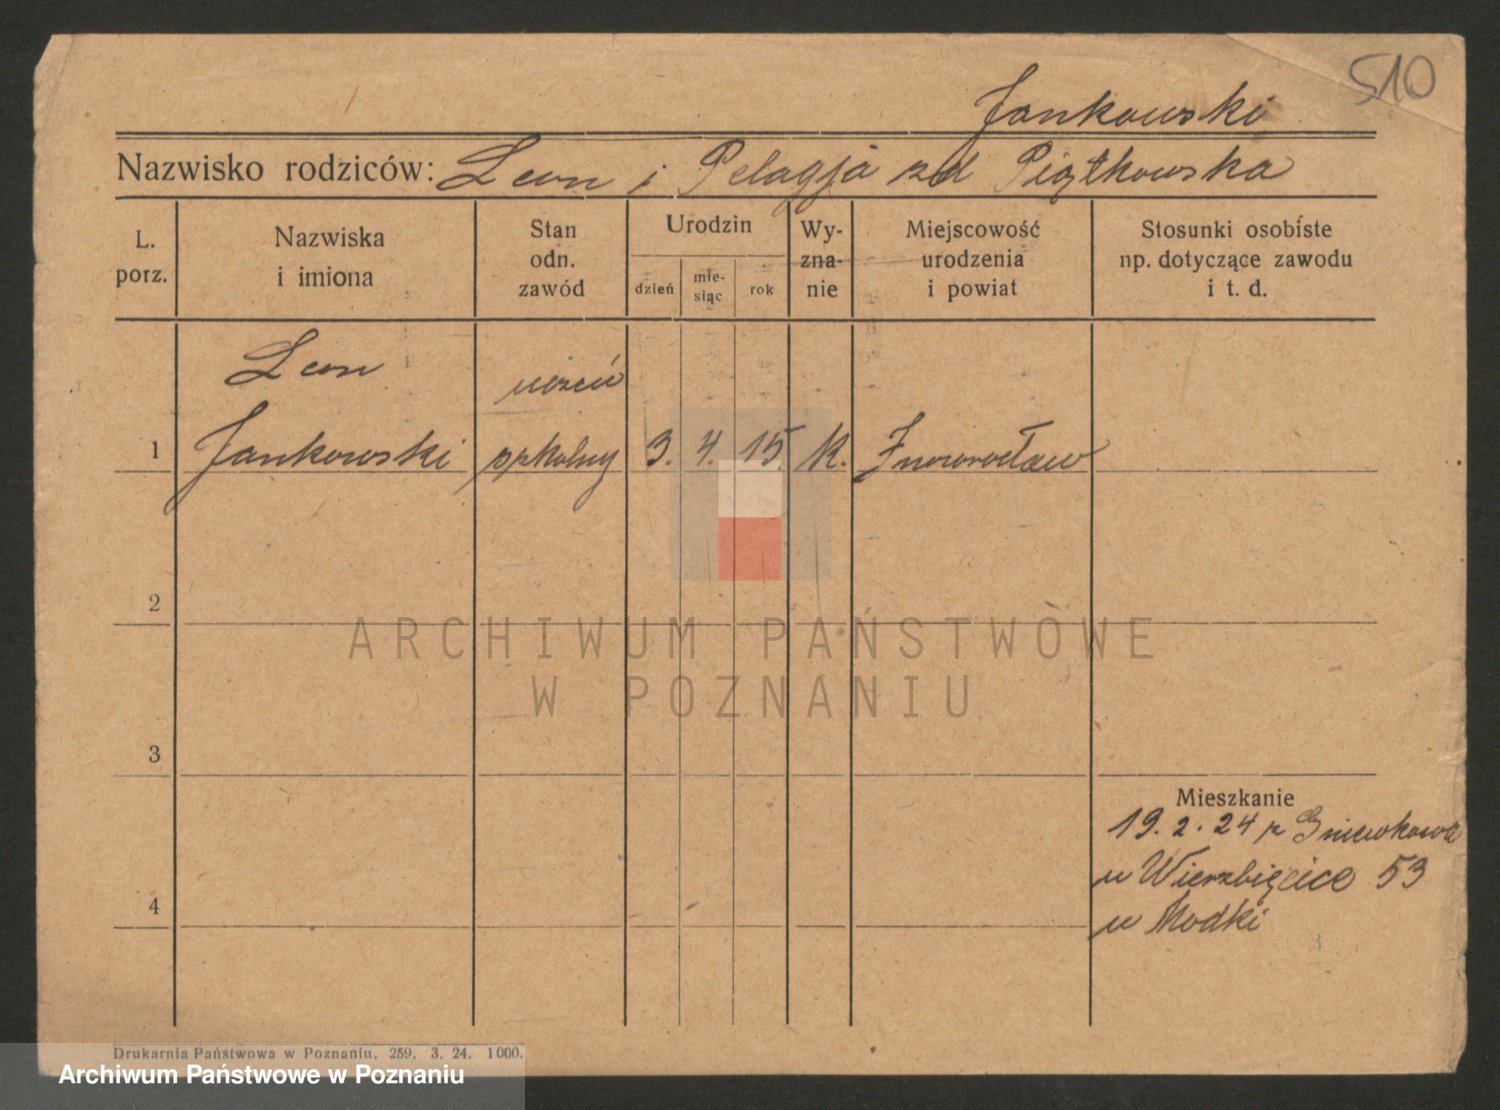 510
Jankowski
Nazwisko rodziców: Leon i Pelagja zd Piątkowska
L. porz.
Nazwiska i imiona
Stan odn. zawód
Urodzin
dzień
mie-siąc
rok
Wy-zna-nie
Miejscowość urodzenia i powiat
Stosunki osobiste np. dotyczące zawodu i t. d.
Leon uczeń
1 Jankowski szkolny 3. 4. 15. K. Inowrocław
2
ARCHIWUM PAŃSTWOWE
W POZNANIU
3
Mieszkanie
19. 2. 24 z Gniewkowa
u Wierzbięcice 53
4
u Modki
Drukarnia Państwowa w Poznaniu. 259. 3. 24. 1000.
Archiwum Państwowe w Poznaniu